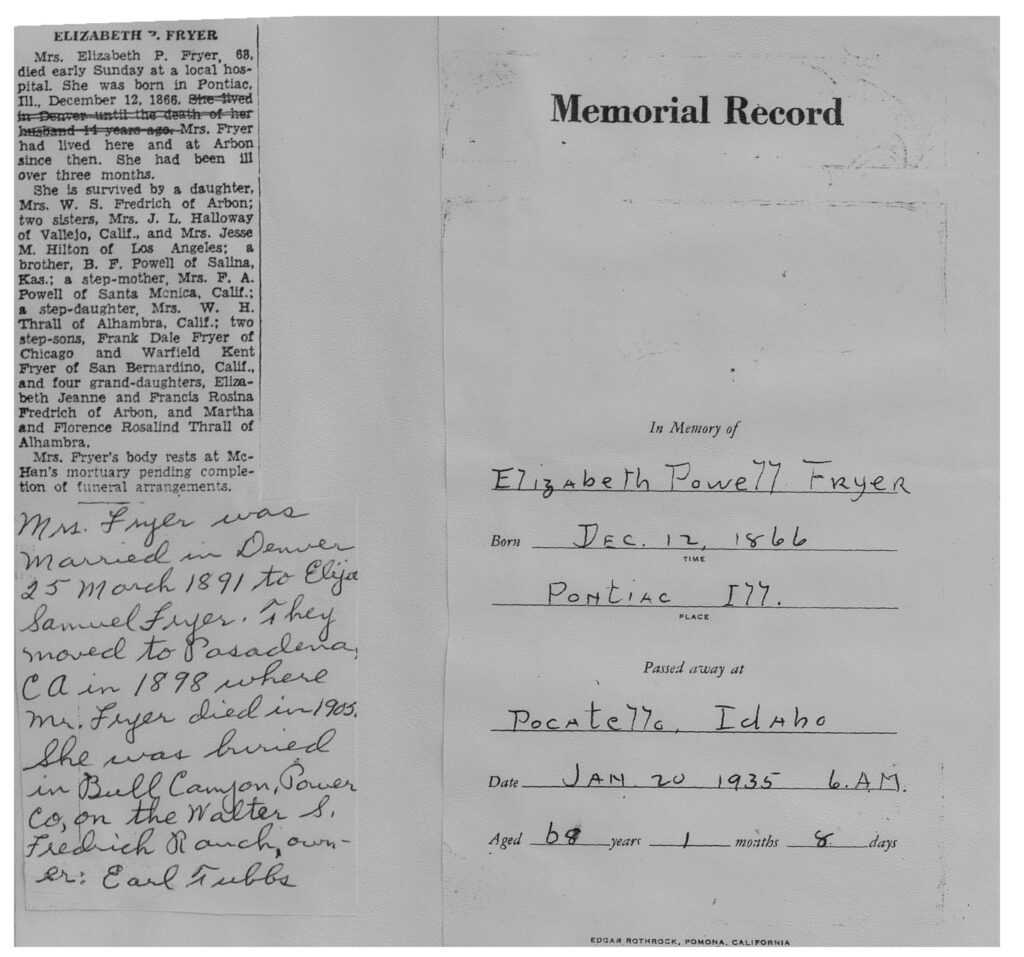 ELIZABETH P. FRYER
Mrs. Elizabeth P. Fryer, 68,
died early Sunday at a local hos-
pital. She was born in Pontiac,
Ill., December 12, 1866. She lived
in Denver until the death of her
husband 14 years ago. Mrs. Fryer
had lived here and at Arbon
since then. She had been ill
over three months.
She is survived by a daughter,
Mrs. W. S. Fredrich of Arbon;
two sisters, Mrs. J. L. Halloway
of Vallejo, Calif., and Mrs. Jesse
M. Hilton of Los Angeles; a
brother, B. F. Powell of Salina,
Kas.; a step-mother, Mrs. F. A.
Powell of Santa Monica, Calif.;
a step-daughter, Mrs. W. H.
Thrall of Alhambra, Calif.; two
step-sons, Frank Dale Fryer of
Chicago and Warfield Kent
Fryer of San Bernardino, Calif.,
and four grand-daughters, Eliza-
beth Jeanne and Francis Rosina
Fredrich of Arbon, and Martha
and Florence Rosalind Thrall of
Alhambra.
Mrs. Fryer's body rests at Mc-
Han's mortuary pending comple-
tion of funeral arrangements.
Mrs. Fryer was
married in Denver
25 March 1891 to Elija
Samuel Fryer. They
moved to Pasadena,
CA in 1898 where
Mr. Fryer died in 1905.
She was buried
in Bull Canyon, Power
Co, on the Walter S.
Fredrich Ranch, own-
er: Earl Tubbs
Memorial Record
In Memory of
Elizabeth Powell Fryer
Born Dec. 12, 1866
TIME
Pontiac Ill.
PLACE
Passed away at
Pocatello, Idaho
Date Jan. 20 1935 6. A.M.
Aged 68 years 1 months 8 days
EDGAR ROTHROCK, POMONA, CALIFORNIA